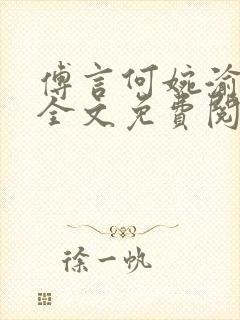 傅言何婉渝
全文免費閱
徐一帆